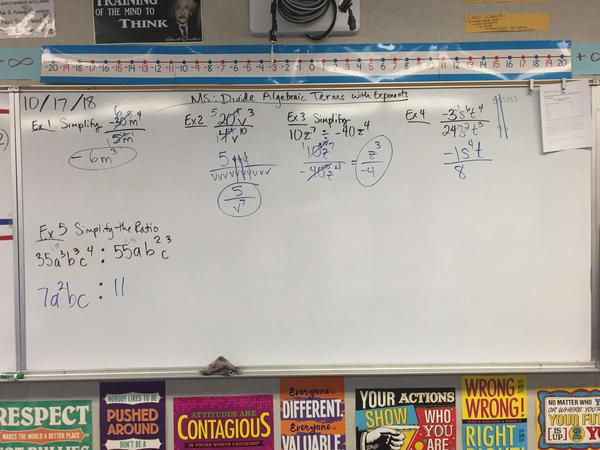 TRAINING
OF THE MIND TO
THINK
-20 -19 -18 -17 -16 -15 -14 -13 -12 -11 -10 -9 -8 -7 -6 -5 -4 -3 -2 -1 0 1 2 3 4 5 6 7 8 9 10 11 12 13 14 15 16 17 18 19 20
-∞
+∞
10/17/18
MS: Divide Algebraic Terms with Exponents
Ex 1 Simplify
-30m⁴
5m
-6m³
Ex2
20v³
4v¹⁰
5
v⁷
Ex 3 Simplify
10z⁷ ÷ -40z⁴
10z⁷
-40z⁴
=
z³
-4
Ex 4
-3s⁶t⁴
24s²t³
-1s⁴t
8
Ex 5 Simplify the Ratio
35a³b³c⁴ : 55ab²c³
7a²bc : 11
RESPECT
MAKES THE WORLD A BETTER PLACE
NOBODY LIKES TO BE
PUSHED
AROUND
DON'T BE A
ATTITUDES ARE
CONTAGIOUS
IS YOURS WORTH CATCHING?
Everyone is
DIFFERENT.
Everyone is
VALUABLE.
YOUR ACTIONS
SHOW
WHO YOU
ARE
WRONG IS
WRONG!
RIGHT
NO MATTER WHO
OR WHERE YOU'RE
YOUR FUTURE
[IS] UP 2 YOU